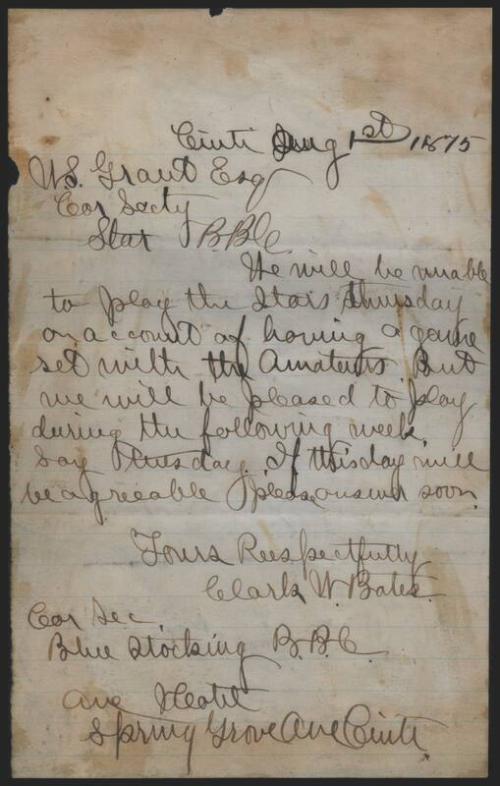 Cinti Aug 1st 1875
W.S. Grant Esq
Cor Secty
Star B.B.C.
We will be unable
to play the Stars Thursday
on account of having a game
set with the Amateurs. But
we will be pleased to play
during the following week.
Say Thursday. If this day will
be agreeable please answer soon.
Yours Respectfully
Clark W. Bates.
Cor Sec.
Blue Stocking B.B.C.
Ave Hotel
Spring Grove Ave Cinti.